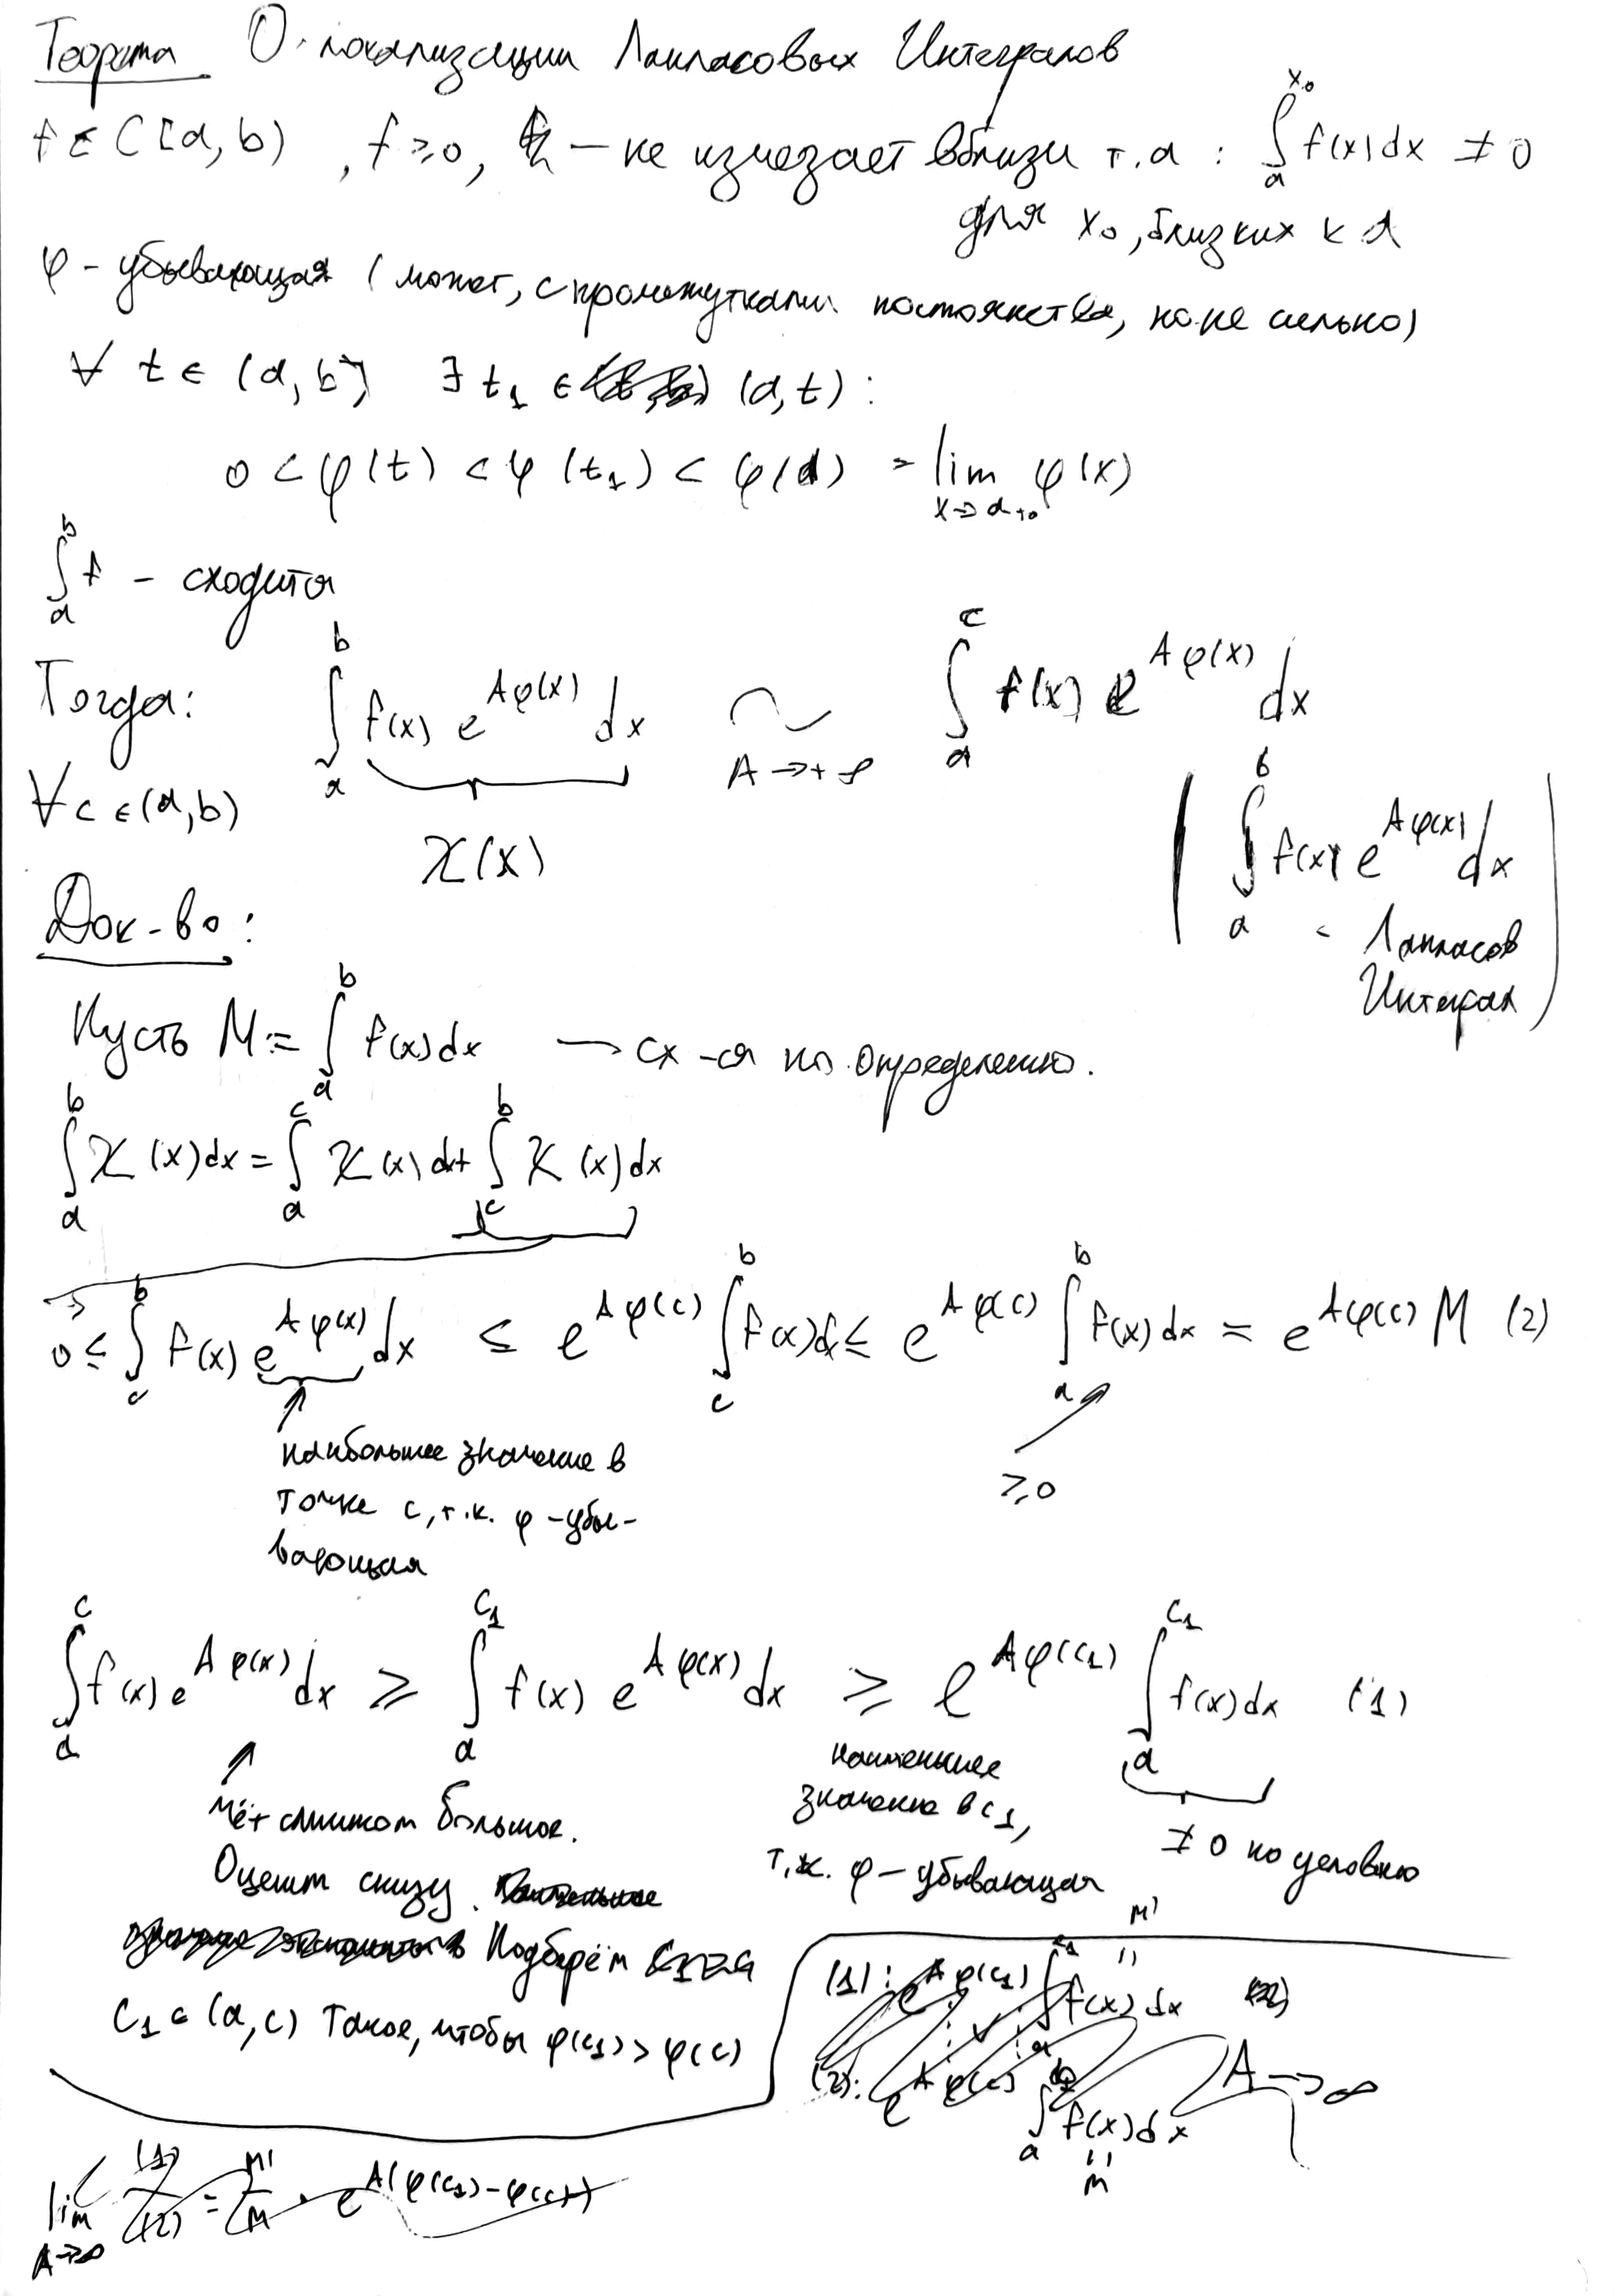 Теорема О локализации Лапласовых Интегралов
f ∈ C[a, b), f ≥ 0, — не изчезает вблизи т. a : ∫_a^{x_0} f(x)dx ≠ 0
для x_0, близких к a
φ - убывающая (может, с промежутками постоянства, но не сильно)
∀ t ∈ (a, b) ∃ t_1 ∈ (a, t) :
0 < φ(t) < φ(t_1) < φ(a) = lim_{x→a+0} φ(x)
∫_a^b f - сходится
Тогда: ∫_a^b f(x) e^{Aφ(x)} dx ~_{A→+∞} ∫_a^c f(x) e^{Aφ(x)} dx
∀ c ∈ (a, b)
𝒦(x)
( ∫_a^b f(x) e^{Aφ(x)} dx
- Лапласов
Интеграл )
Док-во:
Пусть M := ∫_a^b f(x)dx — сх-ся по определению.
∫_a^b 𝒦(x)dx = ∫_a^c 𝒦(x)dx + ∫_c^b 𝒦(x)dx
0 ≤ ∫_c^b f(x) e^{Aφ(x)} dx ≤ e^{Aφ(c)} ∫_c^b f(x)d ≤ e^{Aφ(c)} ∫_a^b f(x)dx = e^{Aφ(c)} M (2)
наибольшее значение в
точке c, т.к. φ - убы-
вающая
≥ 0
∫_a^c f(x) e^{Aφ(x)} dx ≥ ∫_a^{c_1} f(x) e^{Aφ(x)} dx ≥ e^{Aφ(c_1)} ∫_a^{c_1} f(x)dx (1)
слишком большое.
Оценим снизу.
Подберём
c_1 ∈ (a, c) Такое, чтобы φ(c_1) > φ(c)
наименьшее
значение в c_1,
т.к. φ - убывающая
≠ 0 по условию
M'
(1): e^{Aφ(c_1)} ∫_a^{c_1} f(x)dx
(2): e^{Aφ(c)} ∫_a^b f(x)dx
A → ∞
M
lim_{A→∞} (1)/(2) = M'/M · e^{A(φ(c_1)-φ(c))}